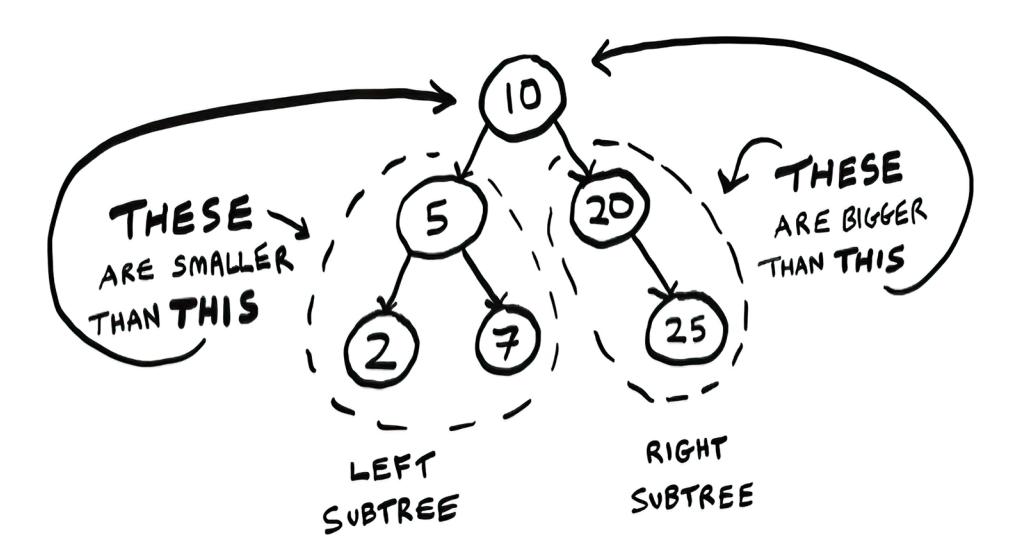 10
5
20
2
7
25
THESE
ARE SMALLER
THAN THIS
THESE
ARE BIGGER
THAN THIS
LEFT
SUBTREE
RIGHT
SUBTREE